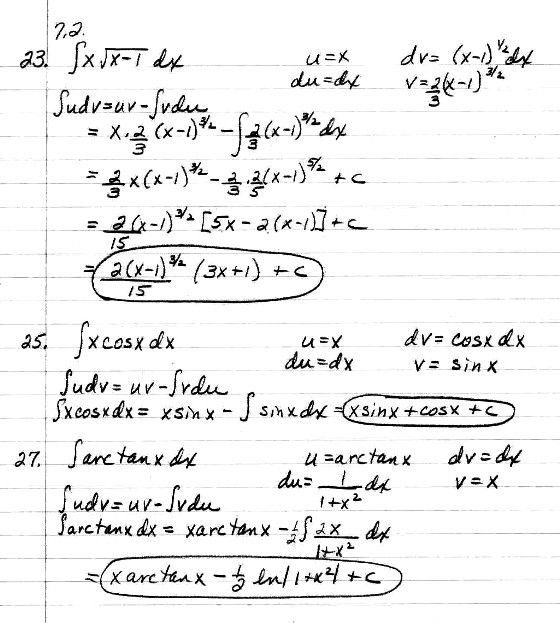 7.2.
23. ∫x√(x-1) dx    u=x    dv= (x-1)^(1/2) dx
du=dx    v= 2/3 (x-1)^(3/2)
∫udv=uv-∫vdu
= x · 2/3 (x-1)^(3/2) - ∫ 2/3 (x-1)^(3/2) dx
= 2/3 x(x-1)^(3/2) - 2/3 · 2/5 (x-1)^(5/2) + c
= 2(x-1)^(3/2)/15 [5x-2(x-1)] + c
= 2(x-1)^(3/2)/15 (3x+1) + c
25. ∫xcosx dx    u=x    dv= cosx dx
du=dx    v= sin x
∫udv= uv-∫vdu
∫xcosxdx= xsinx - ∫sinxdx = xsinx+cosx+c
27. ∫arctanx dx    u=arctanx    dv=dx
du= 1/(1+x²) dx    v=x
∫udv=uv-∫vdu
∫arctanxdx = xarctanx - 1/2 ∫ 2x/(1+x²) dx
= xarctanx - 1/2 ln|1+x²| + c